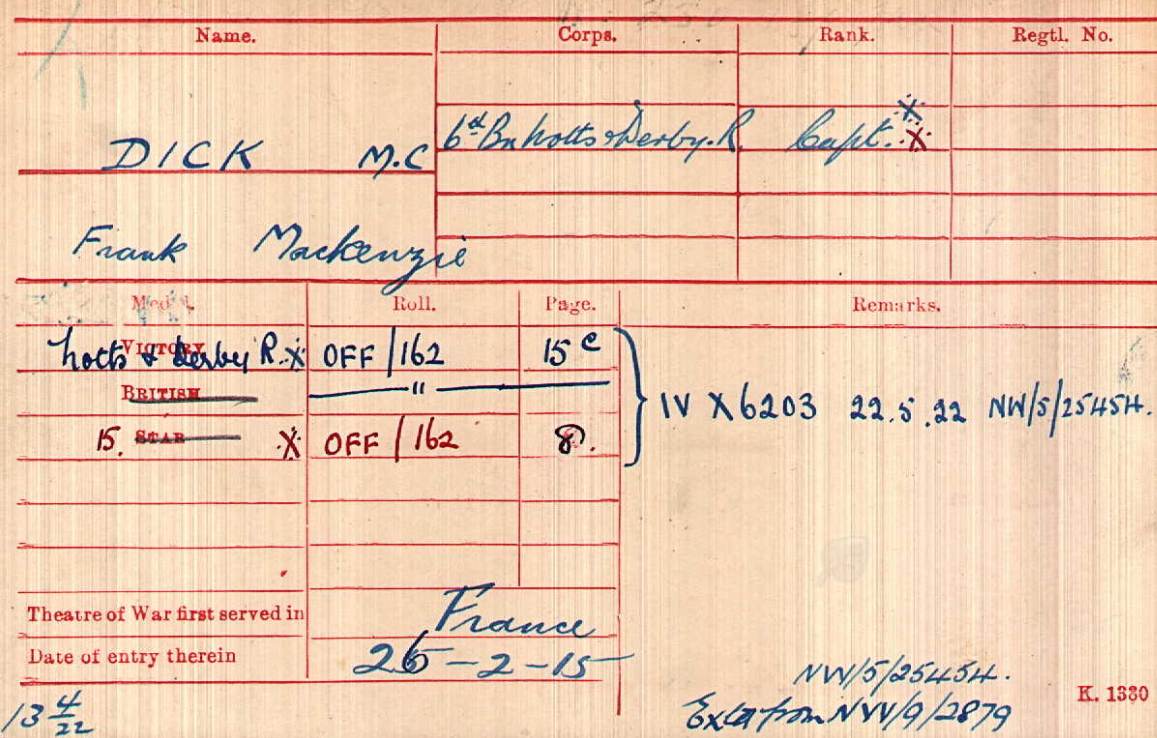 Name. Corps. Rank. Regtl. No.
DICK M.C 6th Bn Notts & Derby. R. Capt. X X
Frank Mackenzie
Medal. Roll. Page. Remarks.
VICTORY Notts & Derby R. X OFF/162 15 C
BRITISH — " —
15 STAR X OFF/162 8.
IV X6203 22.5.22 NW/5/25454.
Theatre of War first served in France
Date of entry therein 26-2-15
NW/5/25454.
from NW/9/2879
K. 1380
13 4/22